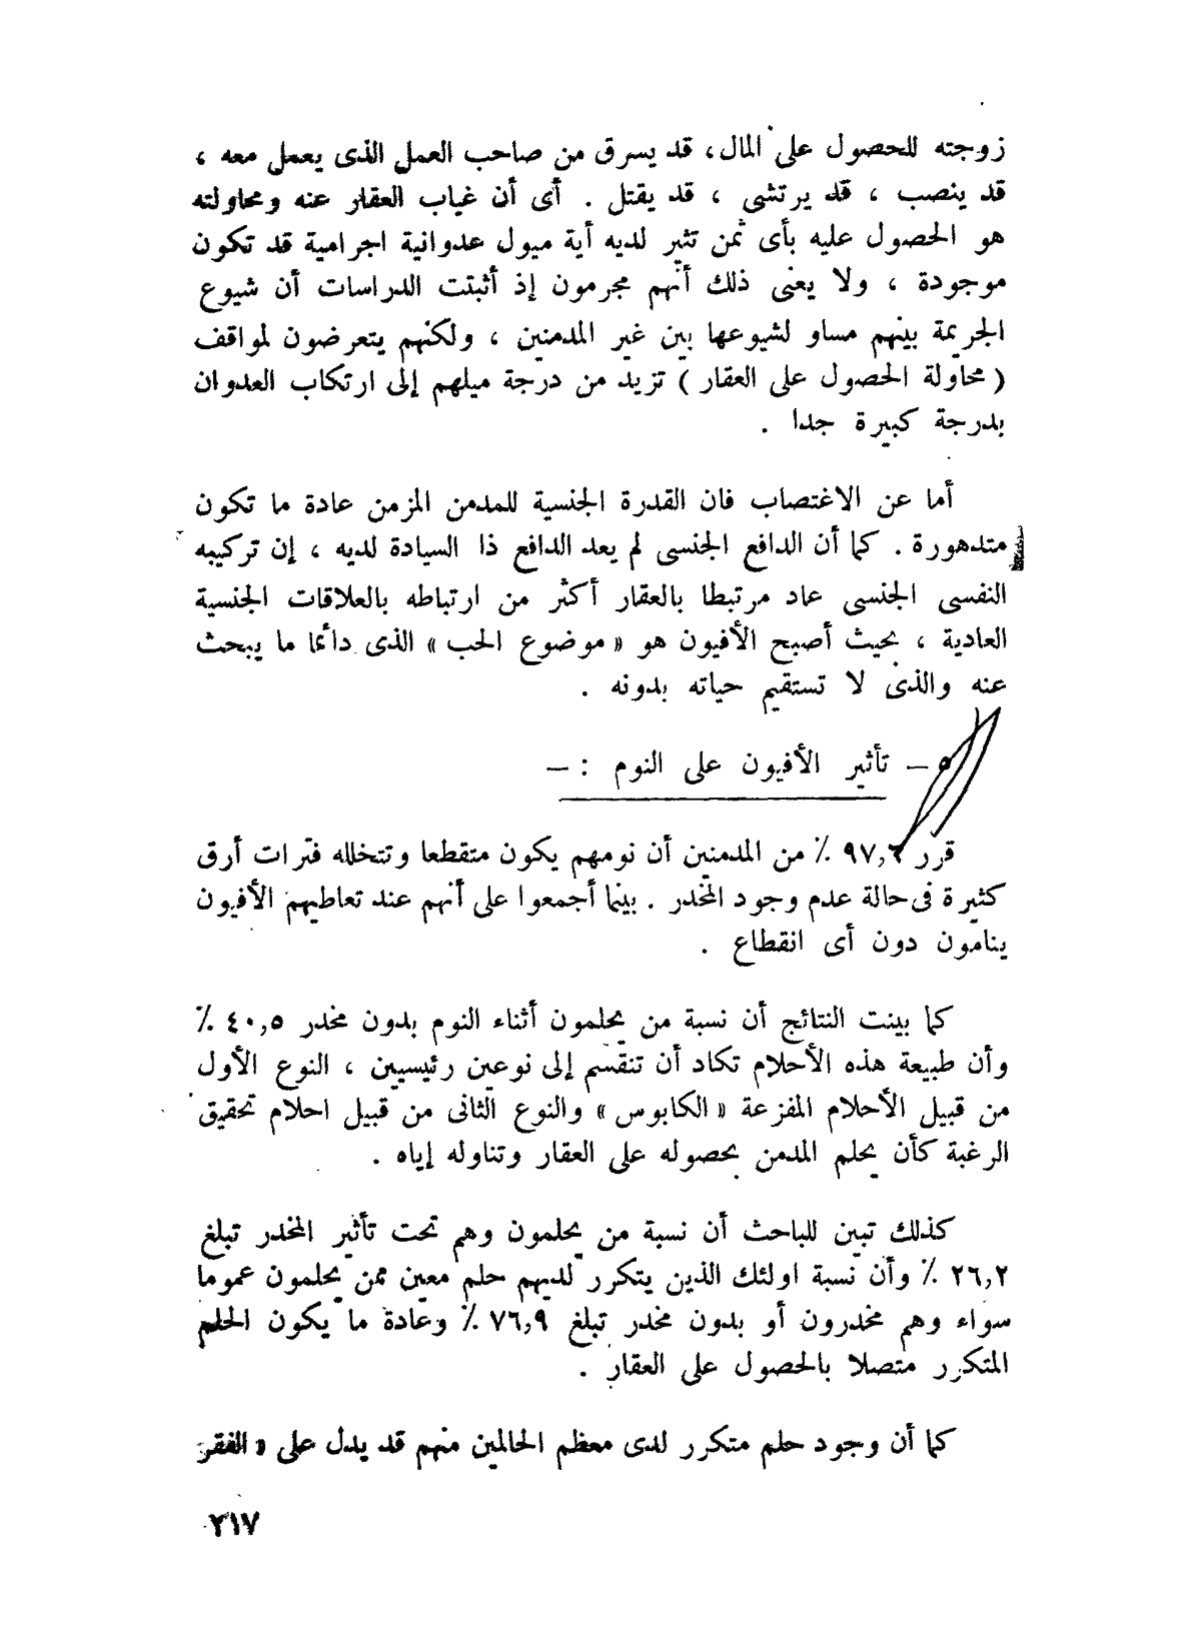 زوجته للحصول على المال، قد يسرق من صاحب العمل الذى يعمل معه ،
قد ينصب ، قد يرتشى ، قد يقتل . أى أن غياب العقار عنه ومحاولته
هو الحصول عليه بأى ثمن تثير لديه أية ميول عدوانية اجرامية قد تكون
موجودة ، ولا يعنى ذلك أنهم مجرمون إذ أثبتت الدراسات أن شيوع
الجريمة بينهم مساو لشيوعها بين غير المدمنين ، ولكنهم يتعرضون لمواقف
( محاولة الحصول على العقار ) تزيد من درجة ميلهم إلى ارتكاب العدوان
بدرجة كبيرة جدا .
أما عن الاغتصاب فان القدرة الجنسية للمدمن المزمن عادة ما تكون
متدهورة . كما أن الدافع الجنسى لم يعد الدافع ذا السيادة لديه ، إن تركيبه
النفسى الجنسى عاد مرتبطا بالعقار أكثر من ارتباطه بالعلاقات الجنسية
العادية ، بحيث أصبح الأفيون هو « موضوع الحب » الذى دائما ما يبحث
عنه والذى لا تستقيم حياته بدونه .
٥ – تأثير الأفيون على النوم : –
قرر ٩٧,٦ ٪ من المدمنين أن نومهم يكون متقطعا وتتخلله فترات أرق
كثيرة فى حالة عدم وجود المخدر . بينما أجمعوا على أنهم عند تعاطيهم الأفيون
ينامون دون أى انقطاع .
كما بينت النتائج أن نسبة من يحلمون أثناء النوم بدون مخدر ٤٠,٥ ٪
وأن طبيعة هذه الأحلام تكاد أن تنقسم إلى نوعين رئيسيين ، النوع الأول
من قبيل الأحلام المفزعة « الكابوس » والنوع الثانى من قبيل احلام تحقيق
الرغبة كأن يحلم المدمن بحصوله على العقار وتناوله إياه .
كذلك تبين للباحث أن نسبة من يحلمون وهم تحت تأثير المخدر تبلغ
٢٦,٢ ٪ وأن نسبة اولئك الذين يتكرر لديهم حلم معين ممن يحلمون عموما
سواء وهم مخدرون أو بدون مخدر تبلغ ٧٦,٩ ٪ وعادة ما يكون الحلم
المتكرر متصلا بالحصول على العقار .
كما أن وجود حلم متكرر لدى معظم الحالمين منهم قد يدل على « الفقر
٢١٧